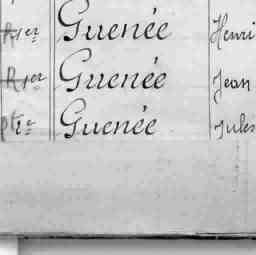 R 1er Guenée Henri
R 1er Guenée Jean
Guenée Jules